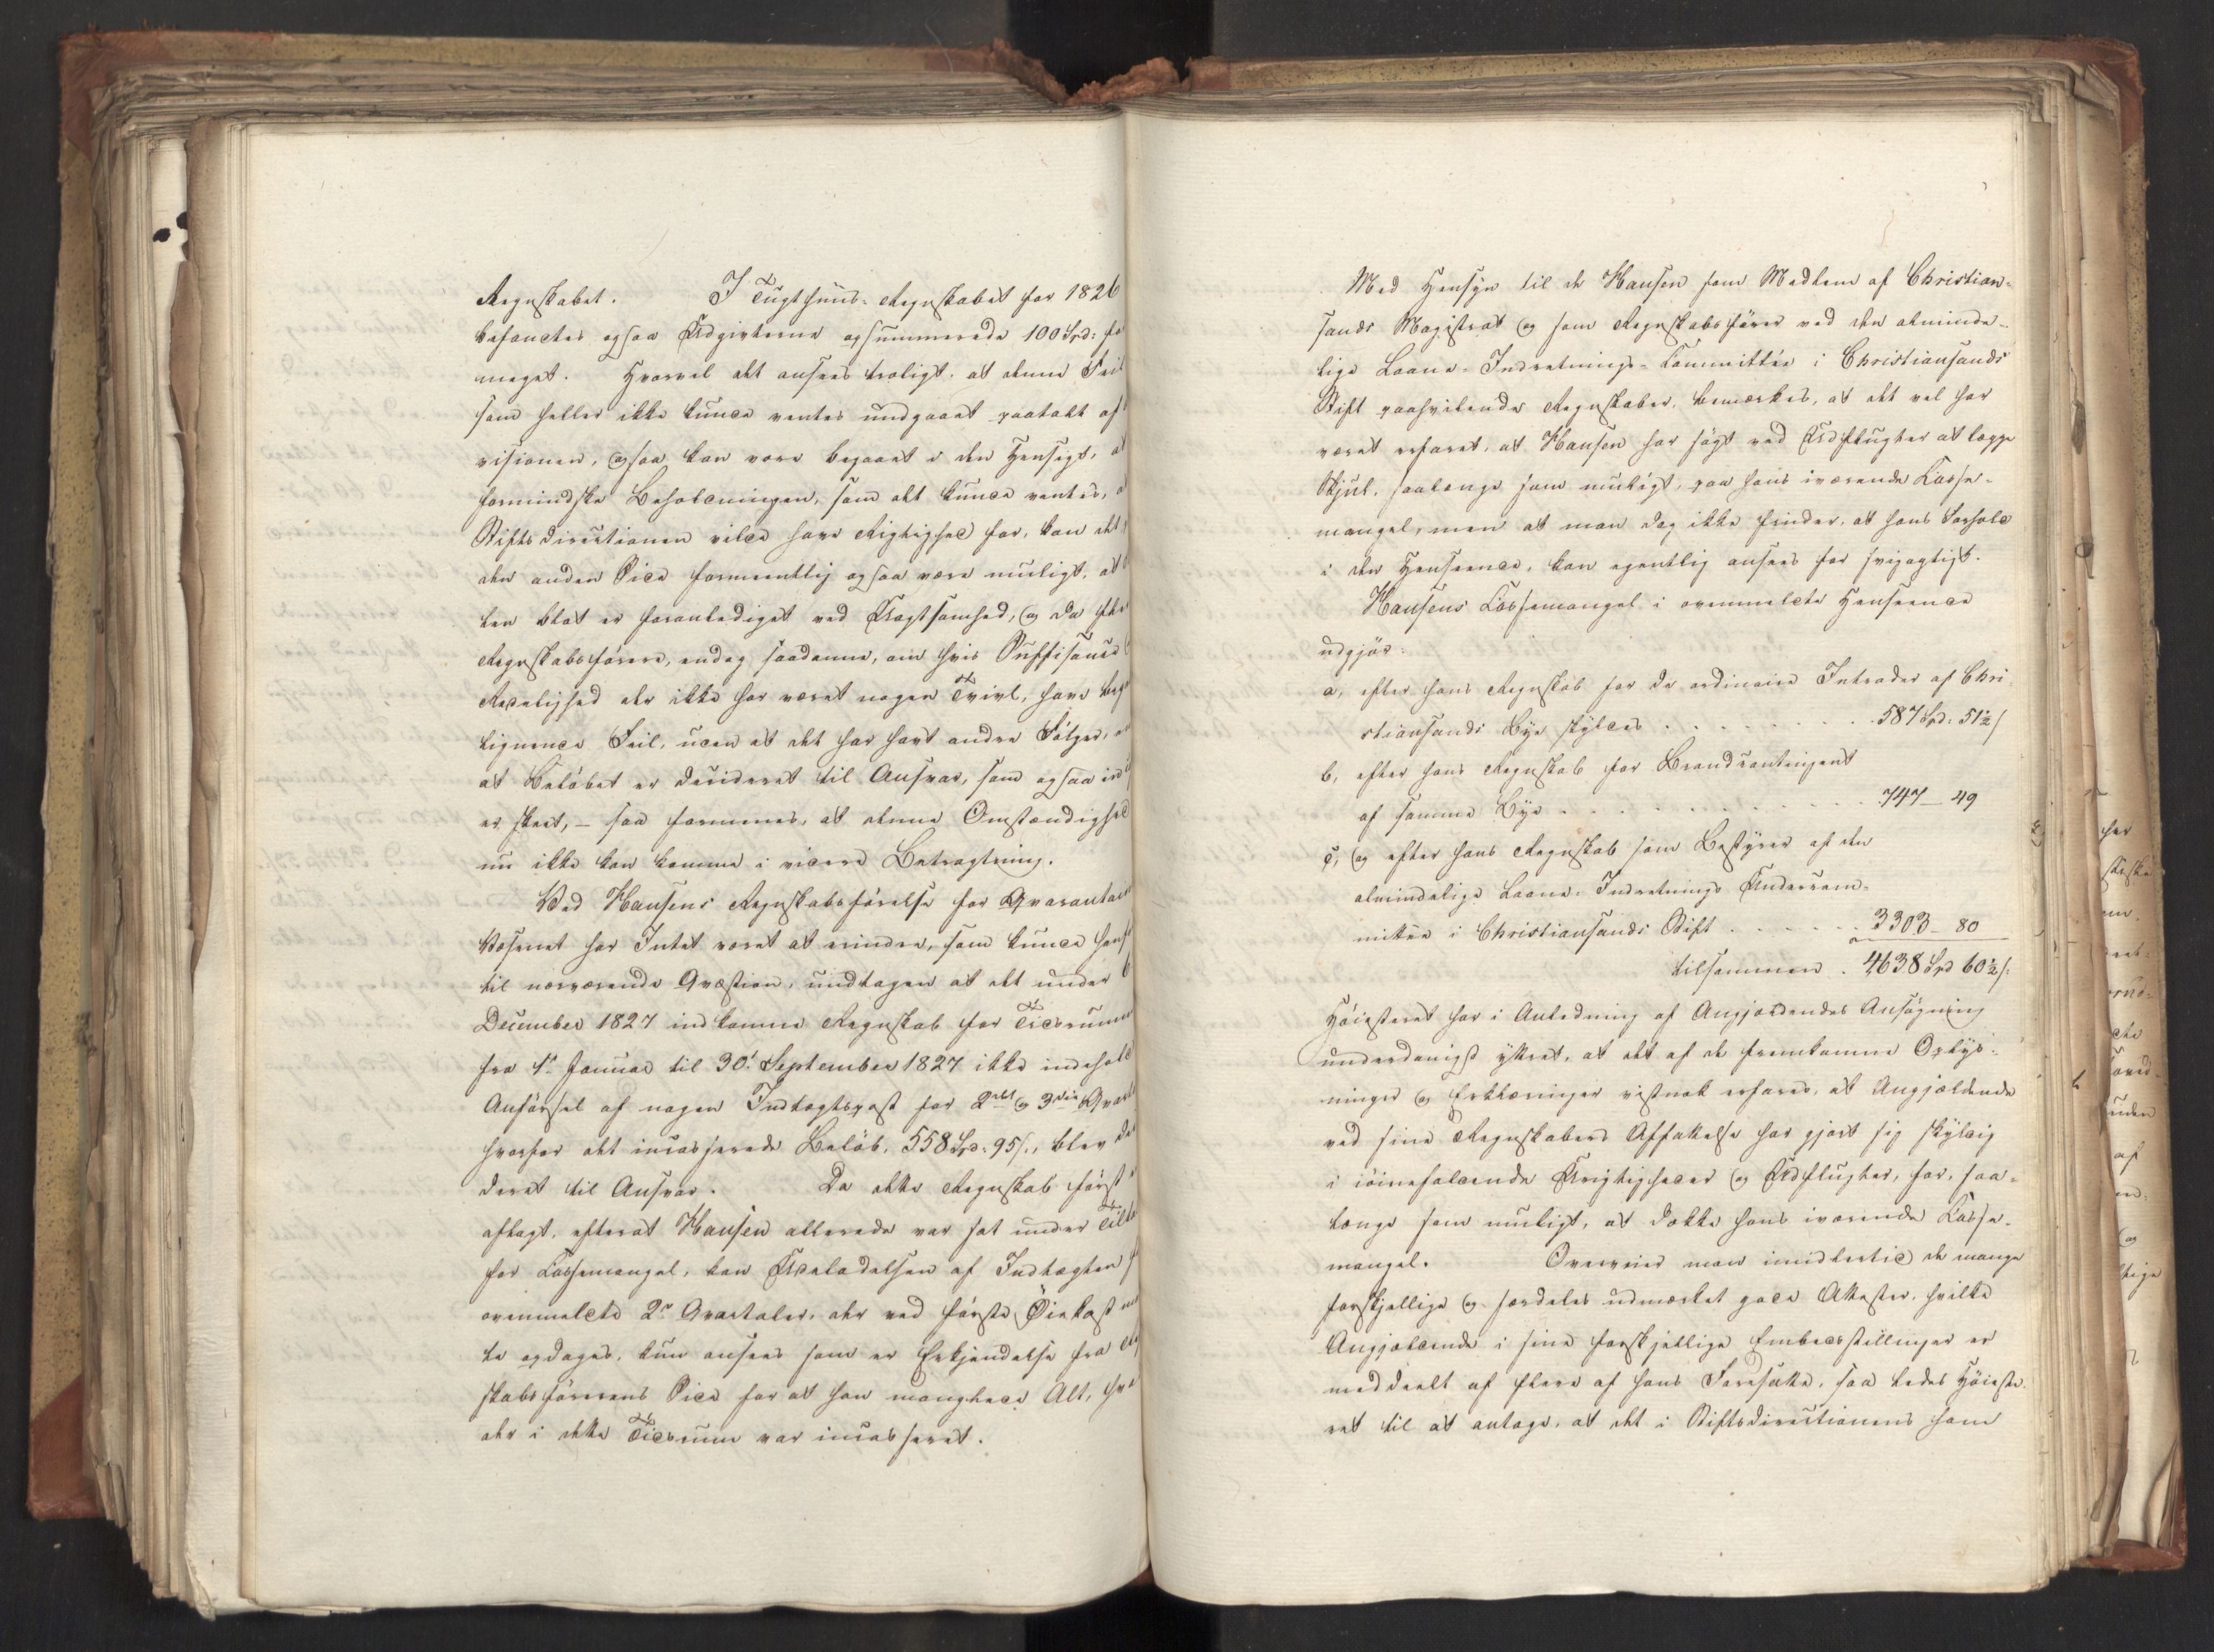 Regnskabet. I Tugthuus-Regnskabet for 1826
befandtes ogsaa Udgivterne opsummerede 100 Spd: for
meget. Hvorvel det ansees troligt, at denne Feil
som heller ikke kunde ventes undgaaet paatalt af
visionen, ogsaa kan være begaaet i den Hensigt, at
formindske Beholdningen, som det kunde ventes, at
Stiftsdirectionen vilde have Rigtighed for, kan det
den anden Side formeentlig ogsaa være muligt, at
den blot er foranlediget ved Uagtsomhed, og da flere
Regnskabsførere, endog saadanne, om hvis Suffisance
Redelighed der ikke har været nogen Tvivl, have beg
lignende Feil, uden at det har havt andre Følger, en
at Beløbet er decideret til Ansvar, som ogsaa
er skeet, – saa formenes, at denne Omstændighed
nu ikke kan komme i videre Betragtning.
Ved Hansens Regnskabsførelse for Qvarantaine
Væsenet har Intet været at erindre, som kunde hense
til nærværende Qvæstion, undtagen at det under 6
December 1827 indkomne Regnskab for Tidsrummet
fra 1e Januar til 30e September 1827 ikke indeholdt
Anførsel af nogen Indtægtspost for 2det og 3die Qvart
hvorfor det incasserede Beløb, 558 Spd: 95 s., blev de
deret til Ansvar. Da dette Regnskab først
aflagt, efterat Hansen allerede var sat under Tilta
for Cassemangel, kan Udeladelsen af Indtægten
ovenmeldte 2de Qvartaler, der ved første Øiekast
te opdages, kun ansees som en Erkjendelse fra
skabsførerens Side for at han manglede Alt, hva
der i dette Tidsrum var incasseret.
Med Hensyn til de Hansen som Medlem af Christian-
sands Magistrat og som Regnskabsfører ved den alminde-
lige Laane-Indretnings-Committée i Christiansands
Stift paahvilende Regnskaber, bemærkes, at det vel har
været erfaret, at Hansen har søgt ved Udflugter at lægge
Skjul, saalænge som muligt, paa hans iværende Casse-
mangel, men at man dog ikke finder, at hans Forhold
i den Henseende, kan egentlig ansees for svigagtigt.
Hansens Cassemangel i ovenmeldte Henseende
udgjør:
a, efter hans Regnskab for de ordinaire Intrader af Chri-
stiansands Bye skyldes . . . . . . . 587 Spd: 51½ s
b, efter hans Regnskab for Brandcontingent
af samme Bye . . . . . . . . . . 747 – 49
c, og efter hans Regnskab som Bestyrer af den
almindelige Laane-Indretnings Undercom-
mittée i Christiansands Stift . . . . . . 3303 – 80
tilsammen . 4638 Spd 60½ s:
Høiesteret har i Anledning af Angjældendes Ansøgning
underdanigst yttret, at det af de fremkomne Oplys-
ninger og Erklæringer vistnok erfares, at Angjældende
ved sine Regnskabers Affattelse har gjort sig skyldig
i iøinefaldende Urigtigheder og Udflugter, for, saa-
længe som muligt, at dække hans iværende Casse-
mangel. Overveier man imidlertid de mange
forskjellige og særdeles udmærket gode Attester, hvilke
Angjældende i sine forskjellige Embedsstillinger er
meddeelt af flere af hans Foresatte, saa ledes Høieste-
ret til at antage, at det i Stiftsdirectionens som